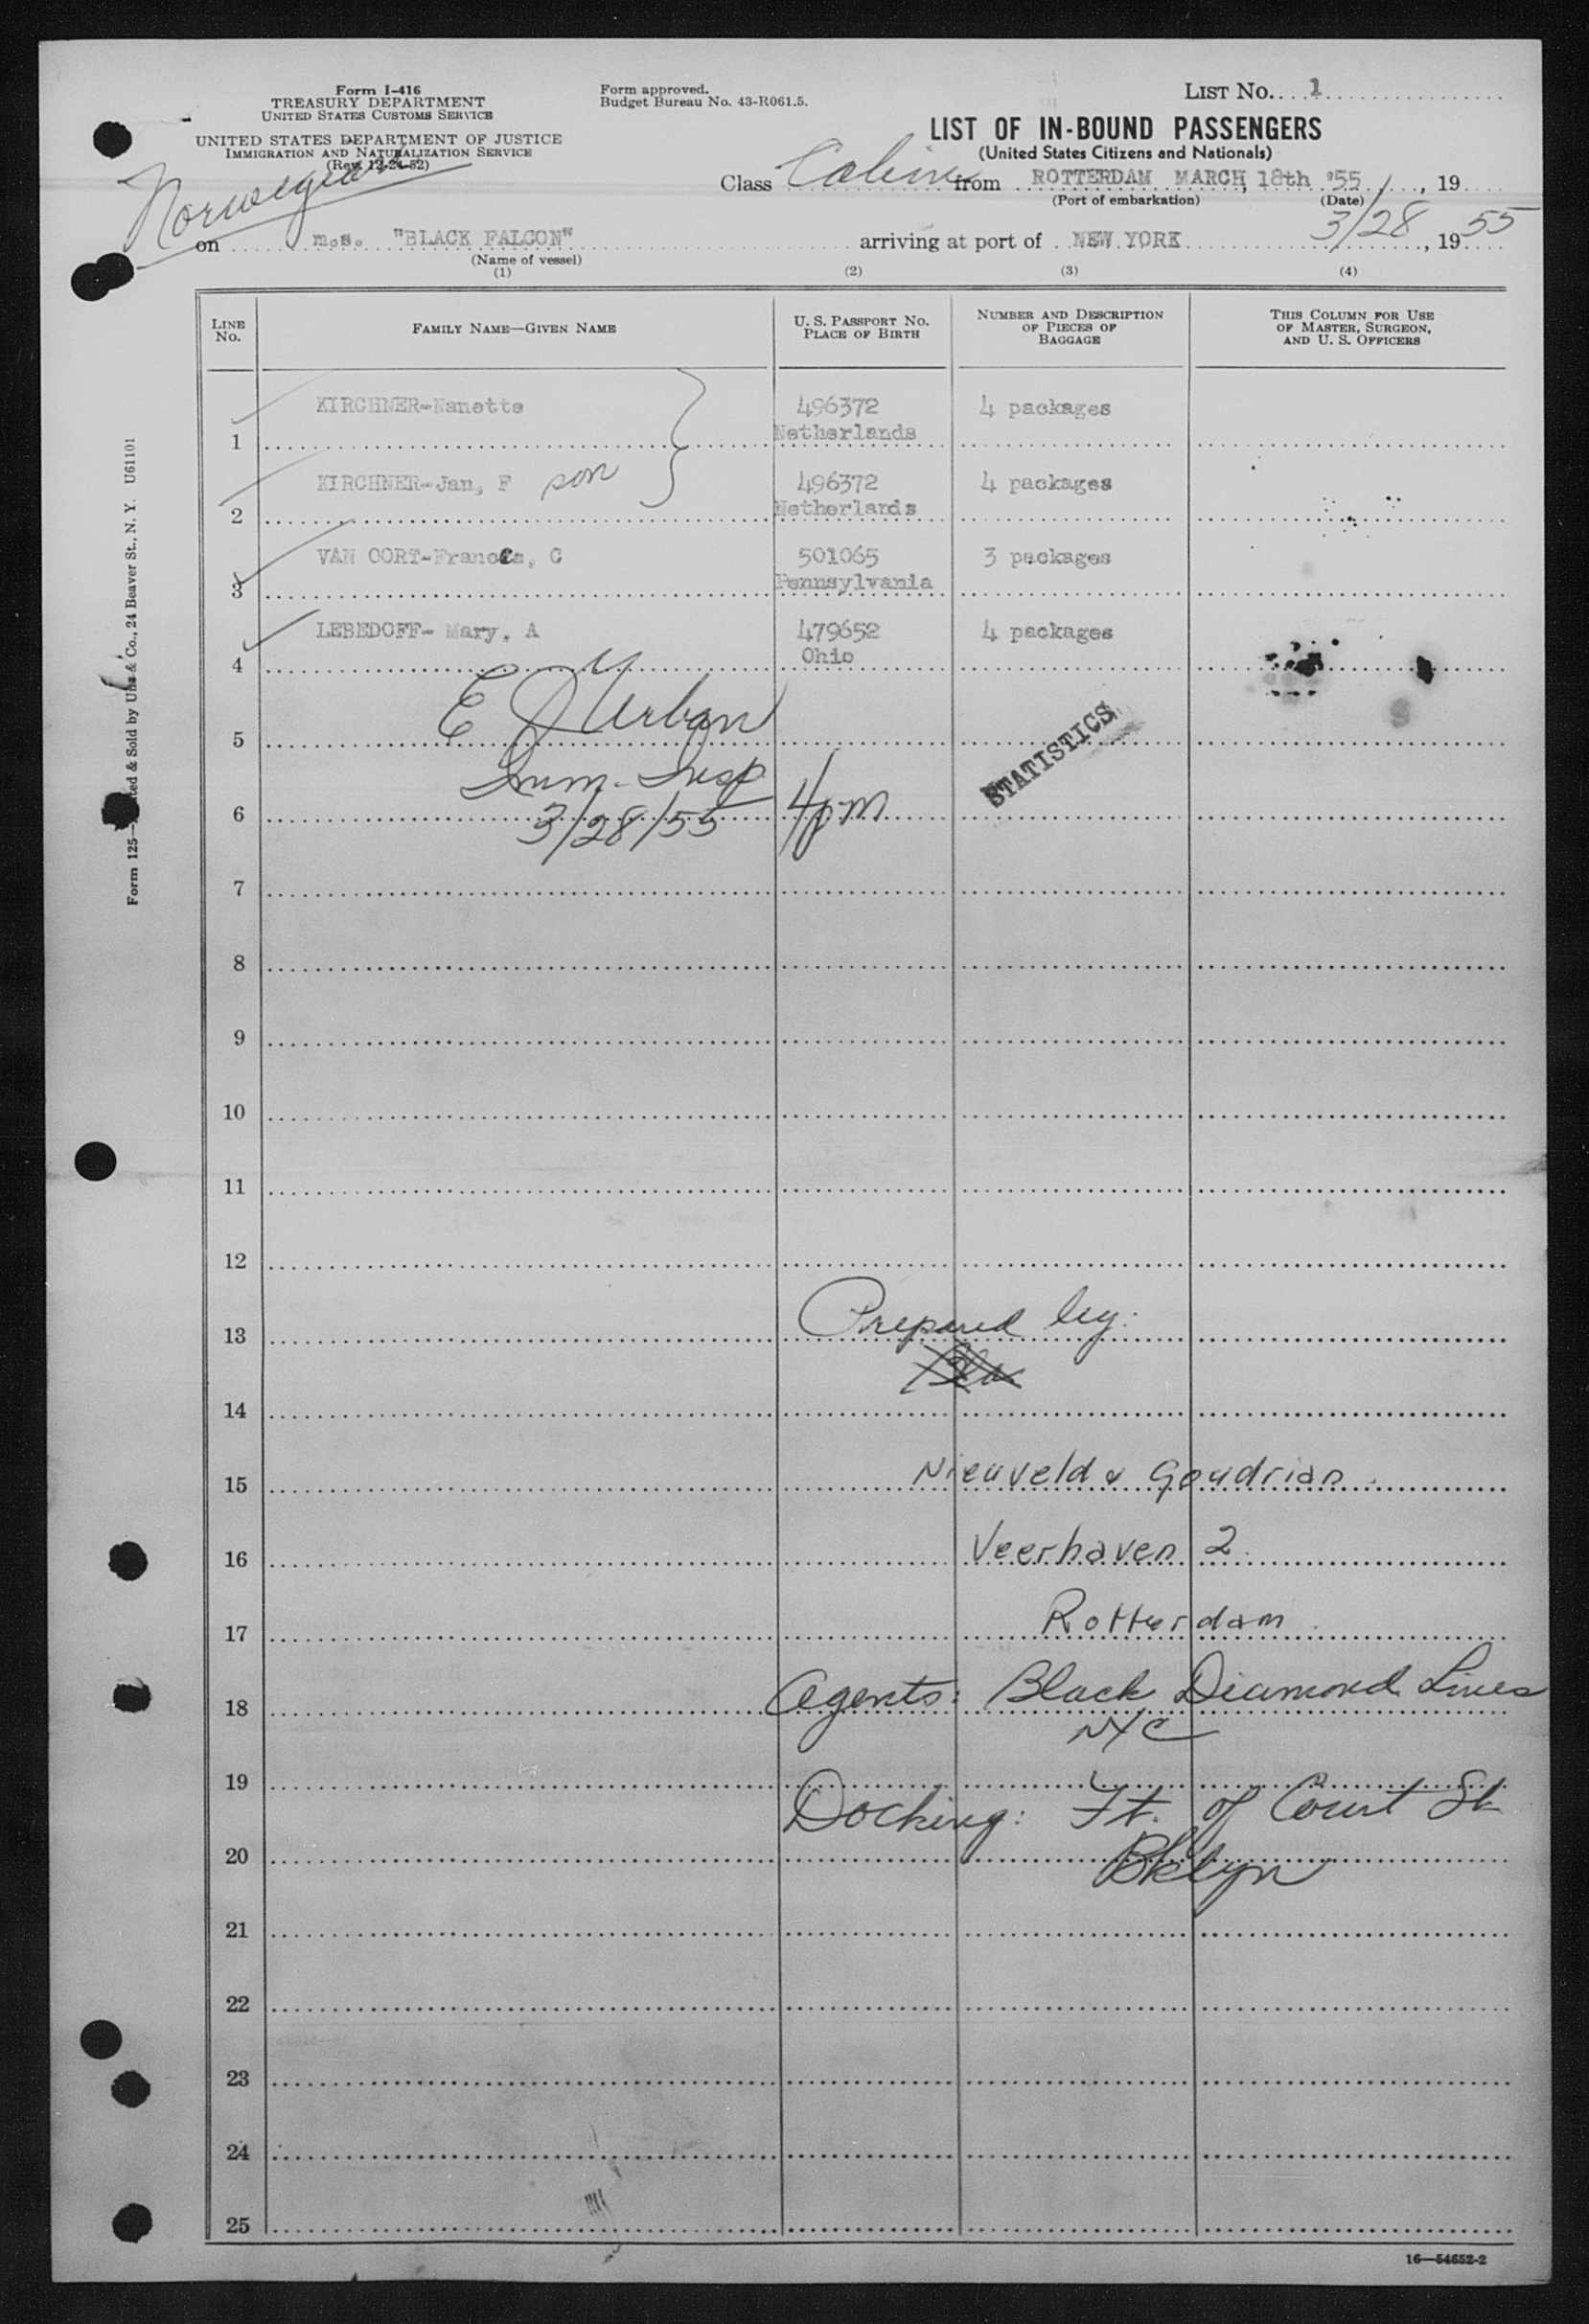 Form I-416
TREASURY DEPARTMENT
UNITED STATES CUSTOMS SERVICE
UNITED STATES DEPARTMENT OF JUSTICE
IMMIGRATION AND NATURALIZATION SERVICE
(Rev. 12-24-52)
Form approved.
Budget Bureau No. 43-R061.5.
LIST NO. 1
LIST OF IN-BOUND PASSENGERS
(United States Citizens and Nationals)
Norwegian
Class Cabin from ROTTERDAM MARCH, 18th '55, 19
(Port of embarkation) (Date)
on m.s. "BLACK FALCON" arriving at port of NEW YORK 3/28, 1955
(Name of vessel)
(1) (2) (3) (4)
LINE NO. FAMILY NAME—GIVEN NAME U. S. PASSPORT NO. PLACE OF BIRTH NUMBER AND DESCRIPTION OF PIECES OF BAGGAGE THIS COLUMN FOR USE OF MASTER, SURGEON, AND U. S. OFFICERS
KIRCHNER-Nanette 496372 4 packages
1 Netherlands
KIRCHNER-Jan, F son 496372 4 packages
2 Netherlands
VAN OORT-Frances, C 501065 3 packages
3 Pennsylvania
LEBEDOFF- Mary, A 479652 4 packages
4 Ohio
E J Urban
5 STATISTICS
Imm. Insp
6
3/28/55 4pm
7
8
9
10
11
12
Prepared by:
13
14
15 Nieuveld & Goudrian
16 Veerhaven 2
17 Rotterdam
18 Agents: Black Diamond Lines
NYC
19
Docking: Ft. of Court St
20 Bklyn
21
22
23
24
25
16—54652-2
Form 125— & Sold by & Co., 24 Beaver St., N. Y. U61101